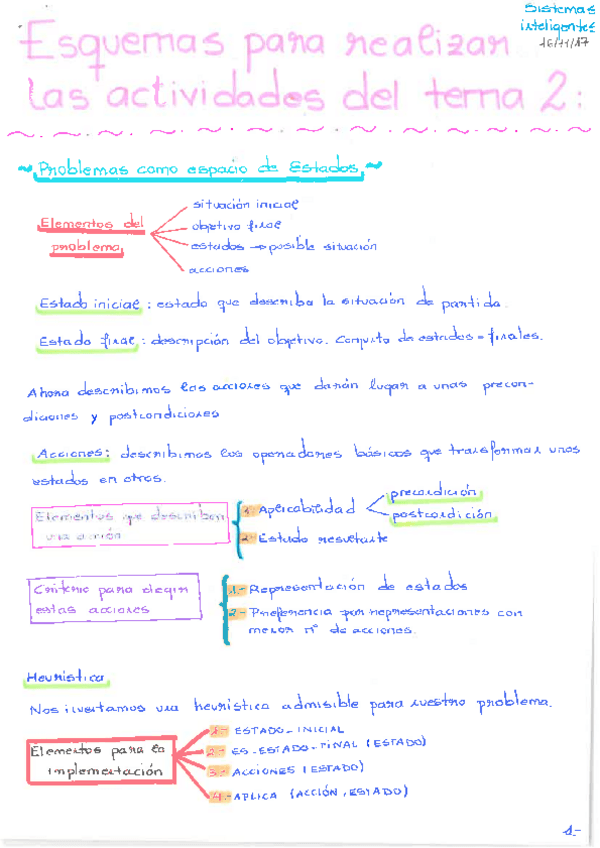 Sistemas
inteligentes
16/11/17
Esquemas para realizar
las actividades del tema 2:
~ Problemas como espacio de Estados ~
Elementos del
problema
situación inicial
objetivo final
estados → posible situación
acciones
Estado inicial : estado que describa la situación de partida.
Estado final : descripción del objetivo. Conjunto de estados = finales.
Ahora describimos las acciones que darán lugar a unas precon-
diciones y postcondiciones
Acciones: describimos los operadores básicos que transforman unos
estados en otros.
Elementos que describen
una acción
1- Aplicabilidad
precondición
postcondición
2- Estado resultante
Criterio para elegir
estas acciones
1.- Representación de estados
2.- Preferencia por representaciones con
menor nº de acciones.
Heurística
Nos inventamos una heurística admisible para nuestro problema.
Elementos para la
implementación
1.- ESTADO-INICIAL
2.- ES-ESTADO-FINAL (ESTADO)
3.- ACCIONES (ESTADO)
4.- APLICA (ACCIÓN, ESTADO)
1.-